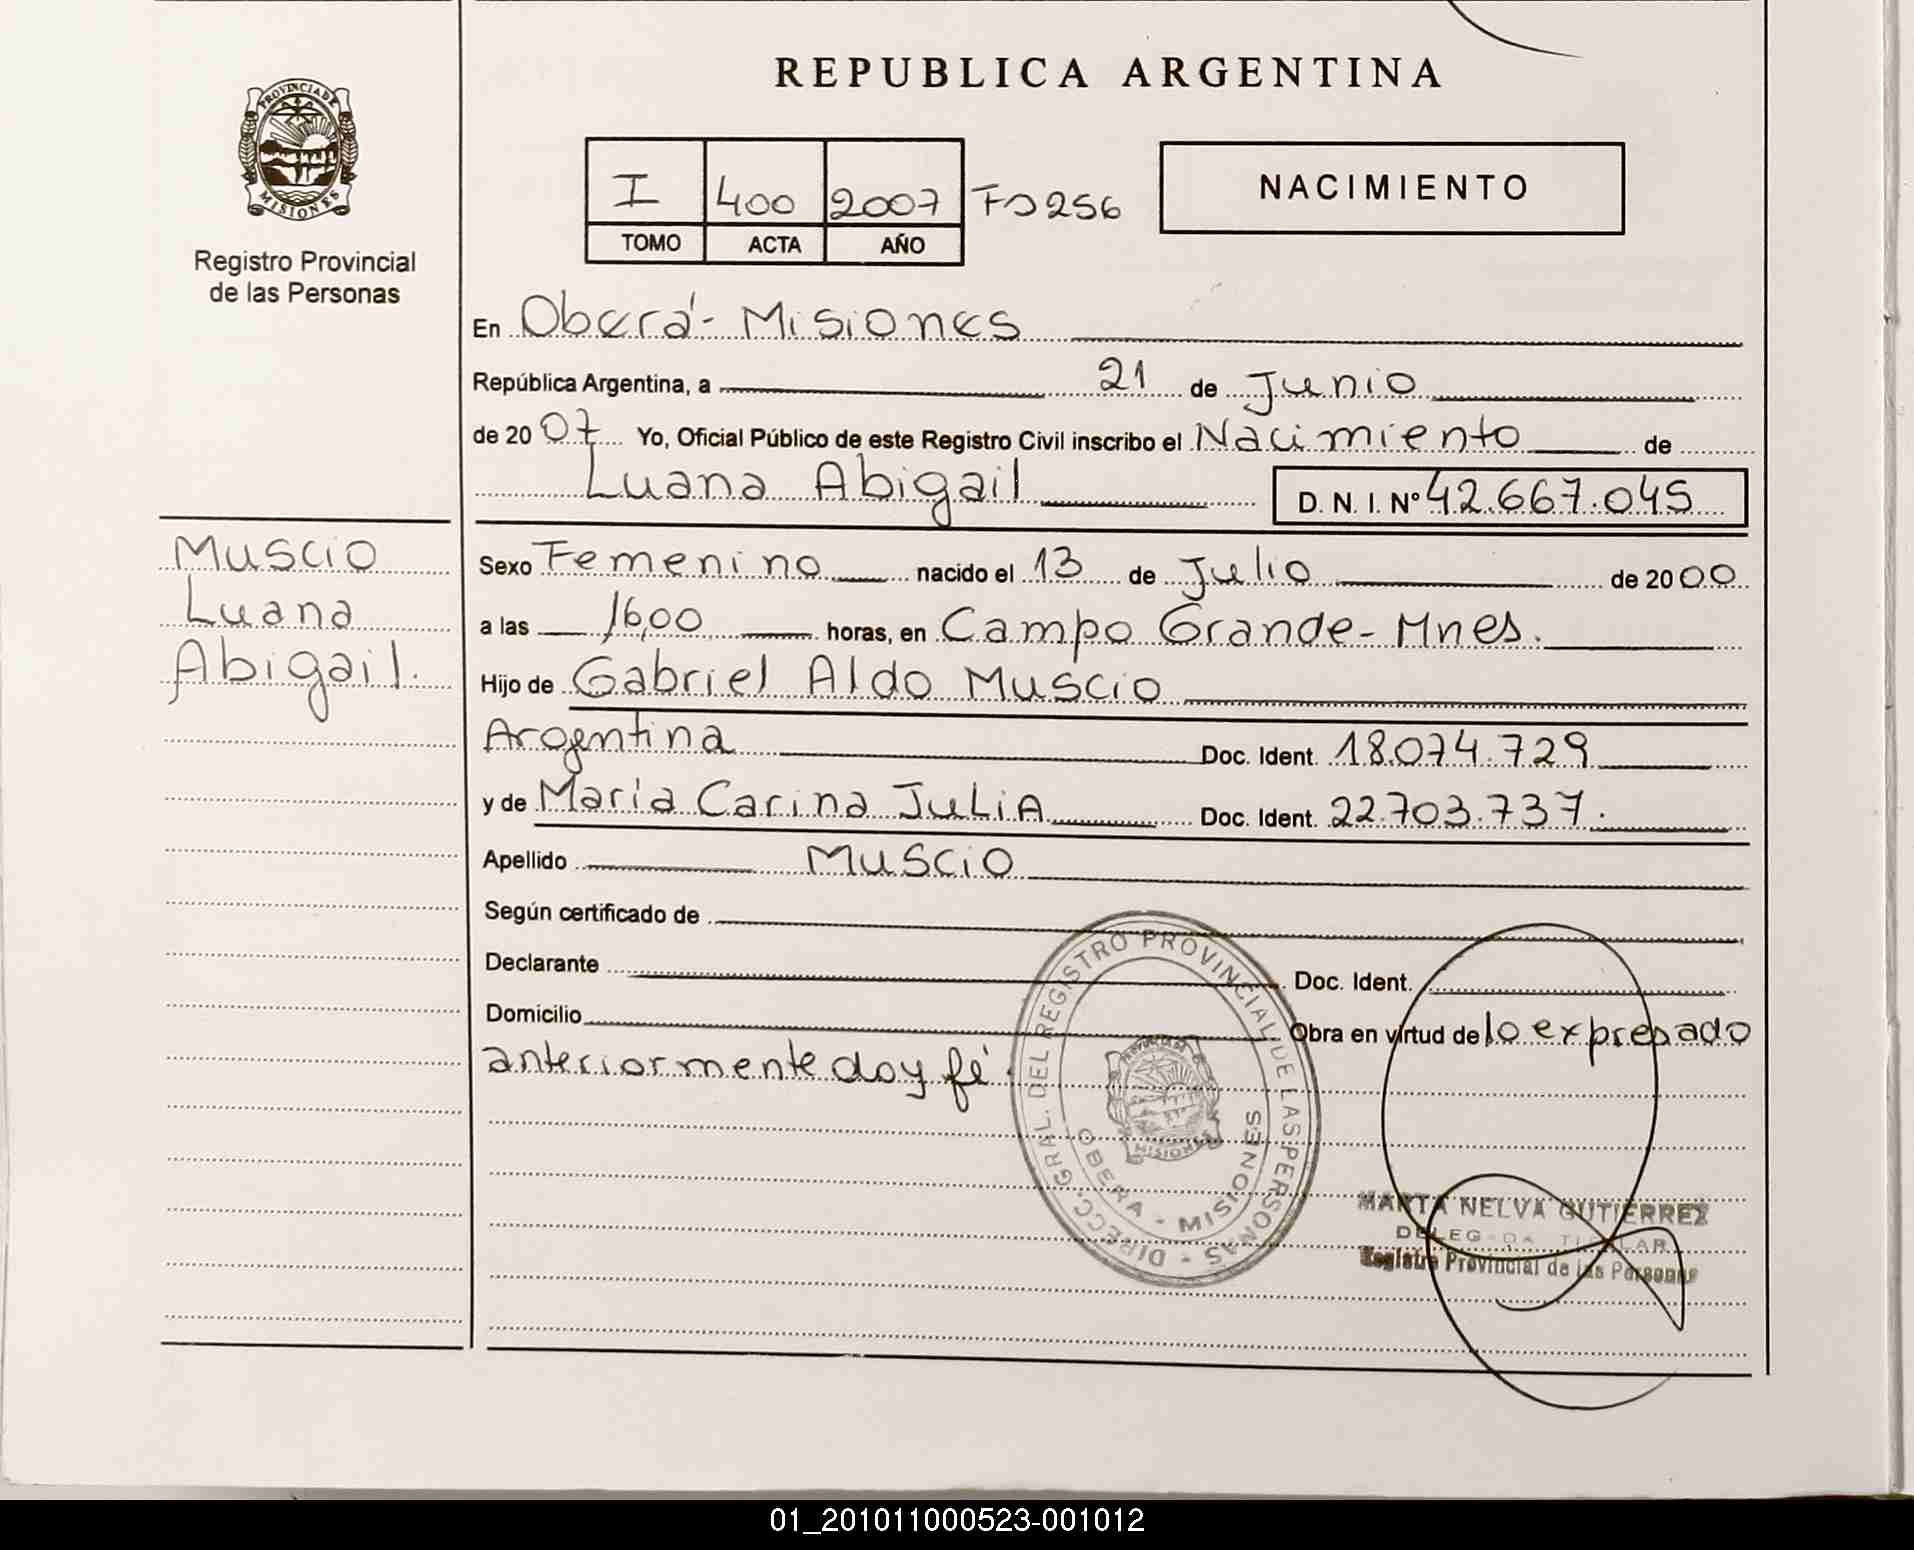 REPUBLICA ARGENTINA
PROVINCIA DE
MISIONES
Registro Provincial
de las Personas
I 400 2007 Fo 256
TOMO ACTA AÑO
NACIMIENTO
En Oberá - Misiones
República Argentina, a 21 de Junio
de 2007 Yo, Oficial Público de este Registro Civil inscribo el Nacimiento de
Luana Abigail D. N. I. Nº 42.667.045
Muscio
Luana
Abigail.
Sexo Femenino nacido el 13 de Julio de 2000
a las 16,00 horas, en Campo Grande - Mnes.
Hijo de Gabriel Aldo Muscio
Argentina Doc. Ident. 18.074.729
y de María Carina JULIA Doc. Ident. 22.703.737.
Apellido Muscio
Según certificado de
Declarante Doc. Ident.
Domicilio Obra en virtud de lo expresado
anteriormente doy fé.
DIRECC. GRAL. DEL REGISTRO PROVINCIAL DE LAS PERSONAS -
PROVINCIA DE
MISIONES
OBERA - MISIONES
MARTA NELVA GUTIERREZ
DELEGADA TITULAR
Registro Provincial de las Personas
01_201011000523-001012